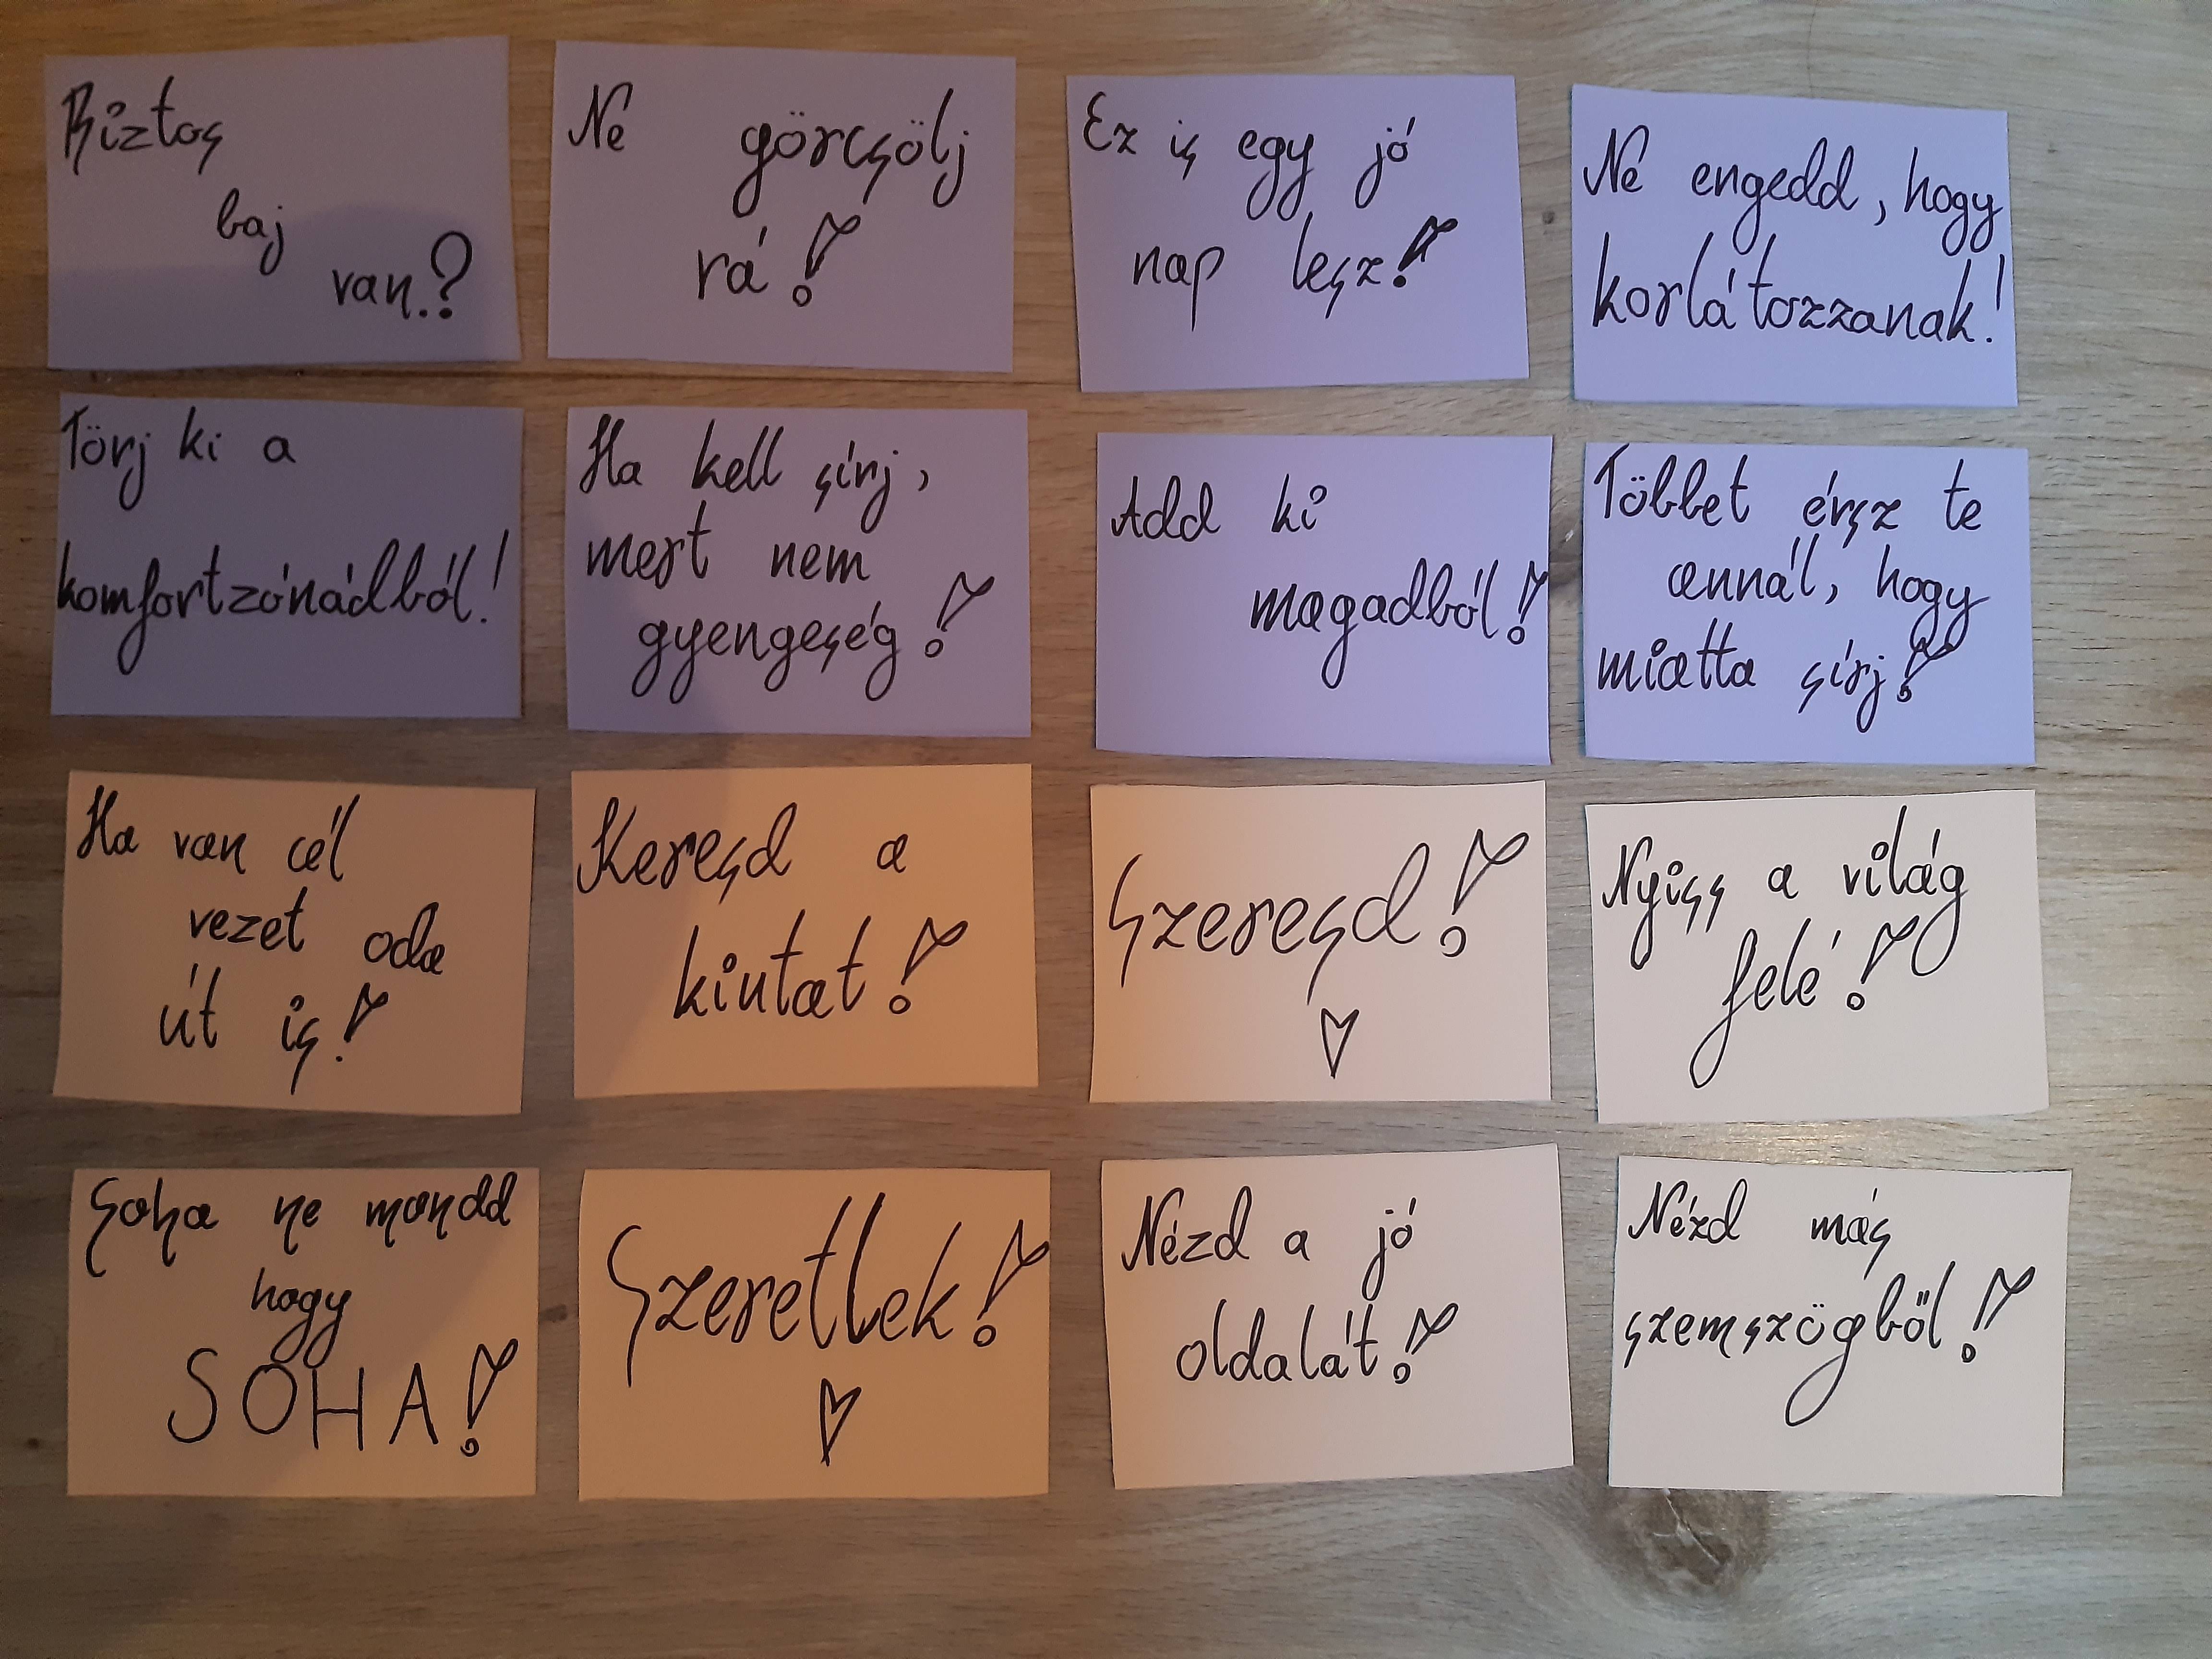 Biztos
baj
van.?
Ne görcsölj
rá!
Ez is egy jó
nap lesz!
Ne engedd, hogy
korlátozzanak!
Törj ki a
komfortzónádból!
Ha kell sírj,
mert nem
gyengeség!
Add ki
magadból!
Többet érsz te
annál, hogy
miatta sírj!
Ha van cél
vezet oda
út is!
Keresd a
kiutat!
Szeresd!
Nyiss a világ
felé!
Soha ne mondd
hogy
SOHA!
Szeretlek!
Nézd a jó
oldalát!
Nézd más
szemszögből!